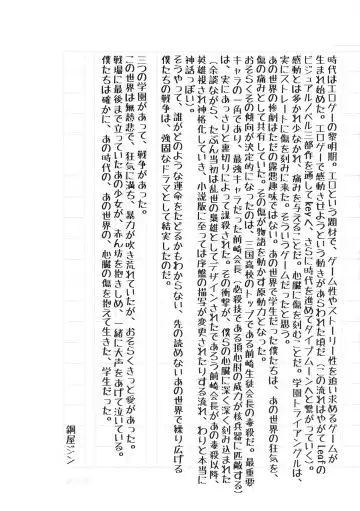 時代はエロゲーの黎明期。エロという題材で、ゲーム性やストーリー性を追い求めるゲームが
生まれ始めた。エロゲーで感動させようという動きがあらわれた頃だ（この流れはやがてLeafの
ビジュアルノベル三部作を通してKeyへ、さらに時代は進めてタイプムーンへと繋がっていく）。
感動とは多かれ少なかれ、痛みを与えることだ。心臓に傷を刻むことだ。学園トライアングルは、
実にストレートに傷を刻みに来た。そういうゲームだったと思う。
あの世界の惨劇はただの露悪趣味ではない。あの世界で学生だった僕たちは、あの世界の狂気を、
傷の痛みとして共有していた。その傷が物語を動かす原動力となった。
おそらくその傾向が決定的になったのは、三国高校のトップである前崎生徒会長の毒殺だ。最重要
キャラの一角であり、最強キャラだった前崎会長（必殺技である頂心肘の威力が核兵器に匹敵する）
は、実にあっさりと裏切りによって謀殺された。その衝撃が、僕らの心臓に深く深く刻み込まれた
（余談ながら、たぶん当初は乱世の梟雄としてデザインされたであろう前崎会長が毒殺以降、
英雄視され神格化していき、小説版に至っては序盤の描写が変更されたりする流れ、わりと本当に
神話っぽい）。
そうやって、誰がどのような運命をたどるかもわからない、先の読めないあの世界で繰り広げる
僕たちの戦争は、強固なドラマとして結実したのだ。
三つの学園があって、戦争があった。
この世界は無慈悲で、狂気に満ち、暴力が吹き荒れていたが、おそらくきっと愛があった。
戦場に最後まで立っていたあの少女が、赤ん坊を抱きしめ、一緒に大声をあげて泣いている。
僕たちは確かに、あの時代の、あの世界の、心臓の傷を抱えて生きた、学生だった。
銅屋ジン